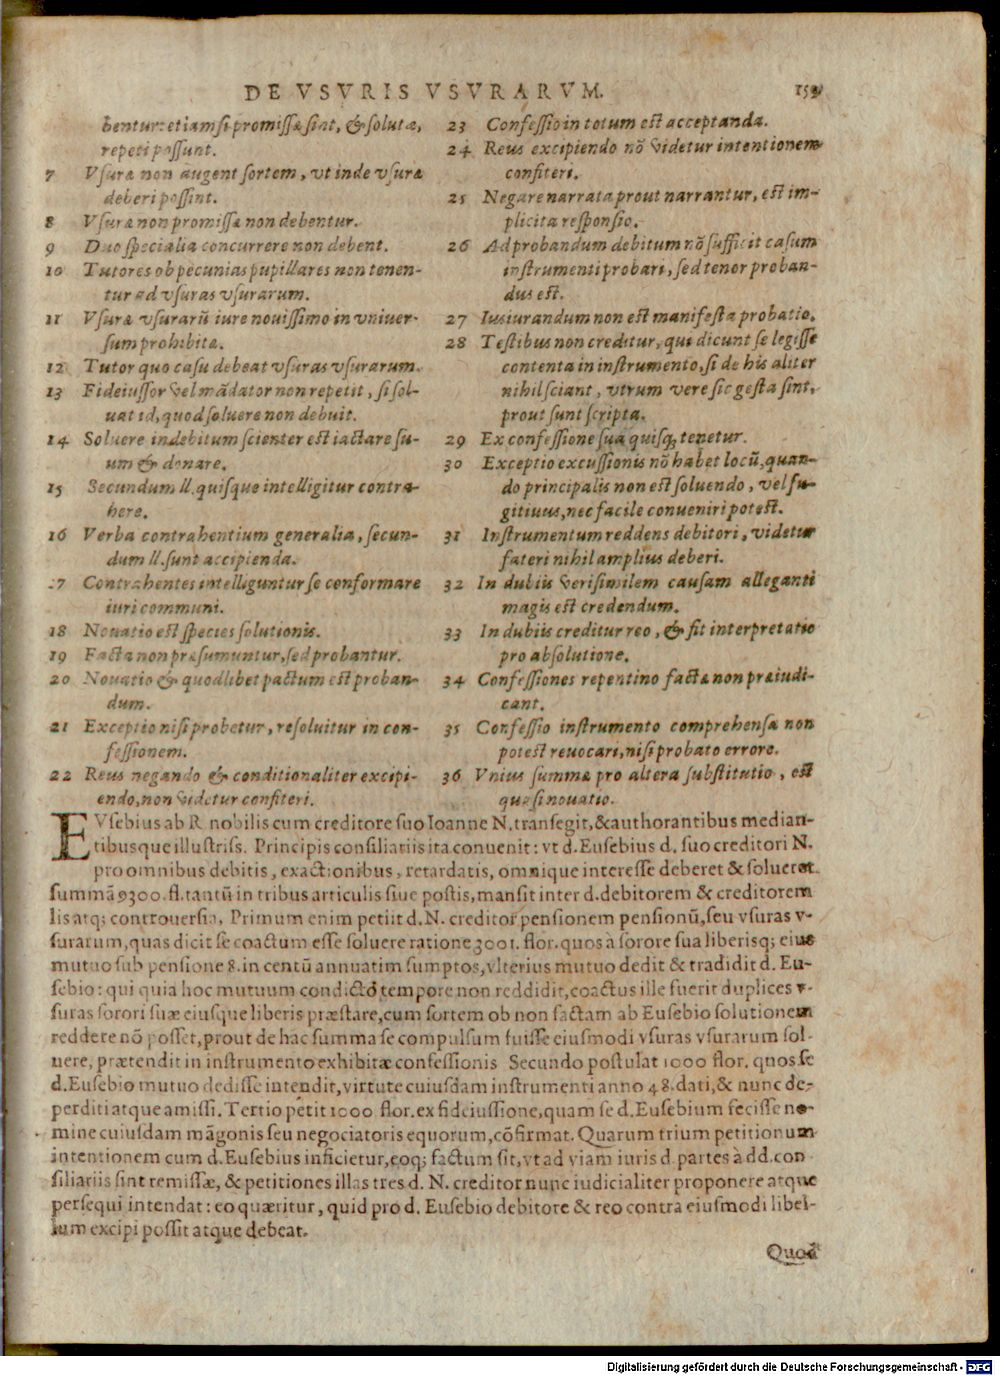 DE VSVRIS VSVRARVM. 159
bentur: etiamsi promissæ sint, & solutæ,
repeti possunt.
7 Vsuræ non augent sortem, vt inde vsuræ
deberi possint.
8 Vsuræ non promissæ non debentur.
9 Duo specialia concurrere non debent.
10 Tutores ob pecunias pupillares non tenen-
tur ad vsuras vsurarum.
11 Vsuræ vsurarũ iure nouissimo in vniuer-
sum prohibitæ.
12 Tutor quo casu debeat vsuras vsurarum.
13 Fideiussor vel mãdator non repetit, si sol-
uat id, quod soluere non debuit.
14 Soluere indebitum scienter est iactare su-
um & donare.
15 Secundum ll. quisque intelligitur contra-
here.
16 Verba contrahentium generalia, secun-
dum ll. sunt accipienda.
17 Contrahentes intelliguntur se conformare
iuri communi.
18 Nouatio est species solutionis.
19 Facta non præsumuntur, sed probantur.
20 Nouatio & quodlibet pactum est proban-
dum.
21 Exceptio nisi probetur, resoluitur in con-
fessionem.
22 Reus negando & conditionaliter excipi-
endo, non videtur confiteri.
23 Confessio in totum est acceptanda.
24 Reus excipiendo nõ videtur intentionem
confiteri.
25 Negare narrata prout narrantur, est im-
plicita responsio.
26 Ad probandum debitum nõ sufficit casum
instrumenti probari, sed tenor proban-
dus est.
27 Iusiurandum non est manifesta probatio.
28 Testibus non creditur, qui dicunt se legisse
contenta in instrumento, si de his aliter
nihil sciant, vtrum vere sic gesta sint,
prout sunt scripta.
29 Ex confessione sua quisq; tenetur.
30 Exceptio excussionis nõ habet locũ, quan-
do principalis non est soluendo, vel fu-
gitiuus, nec facile conueniri potest.
31 Instrumentum reddens debitori, videtur
fateri nihil amplius deberi.
32 In dubiis verisimilem causam alleganti
magis est credendum.
33 In dubiis creditur reo, & fit interpretatio
pro absolutione.
34 Confessiones repentino factæ non præiudi-
cant.
35 Confessio instrumento comprehensa non
potest reuocari, nisi probato errore.
36 Vnius summæ pro altera substitutio, est
quasi nouatio.
EVsebius ab R nobilis cum creditore suo Ioanne N. transegit, & authorantibus median-
tibusque illustriss. Principis consiliariis ita conuenit: vt d. Eusebius d. suo creditori N.
pro omnibus debitis, exactionibus, retardatis, omnique interesse deberet & solueret
summã 9300. fl. tantũ in tribus articulis siue postis, mansit inter d. debitorem & creditorem
lis atq; controuersia. Primum enim petiit d. N. creditor pensionem pensionũ, seu vsuras v-
surarum, quas dicit se coactum esse soluere ratione 3001. flor. quos à sorore sua liberisq; eius
mutuo sub pensione 8. in centũ annuatim sumptos, vlterius mutuo dedit & tradidit d. Eu-
sebio: qui quia hoc mutuum condicto tempore non reddidit, coactus ille fuerit duplices v-
suras sorori suæ eiusque liberis præstare, cum sortem ob non factam ab Eusebio solutionem
reddere nõ posset, prout de hac summa se compulsum fuisse eiusmodi vsuras vsurarum sol-
uere, prætendit in instrumento exhibitæ confessionis Secundo postulat 1000 flor. quos se
d. Eusebio mutuo dedisse intendit, virtute cuiusdam instrumenti anno 48. dati, & nunc de-
perditi atque amissi. Tertio petit 1000 flor. ex fideiussione, quam se d. Eusebium fecisse no-
mine cuiusdam mãgonis seu negociatoris equorum, cõfirmat. Quarum trium petitionum
intentionem cum d. Eusebius inficietur, eoq; factum sit, vt ad viam iuris d. partes à dd. con-
siliariis sint remissæ, & petitiones illas tres d. N. creditor nunc iudicialiter proponere atque
persequi intendat: eo quæritur, quid pro d. Eusebio debitore & reo contra eiusmodi libel-
lum excipi possit atque debeat.
Quod
Digitalisierung gefördert durch die Deutsche Forschungsgemeinschaft - DFG